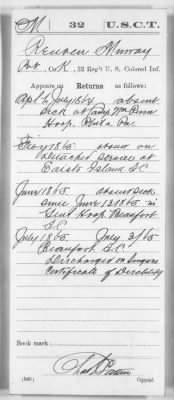 M 32 U.S.C.T.
Reuben Murray
Pvt, Co. K, 32 Reg't U. S. Colored Inf.
Appears in Returns as follows:
Apl to July 1864 absent
sick at Camp Wm Penn
Hosp. Phila Pa.
1865 absent on
Detached Service at
Edisto Island S.C.
June 1865. absent sick
since June 13 1865 in
Genl Hosp. Beaufort
S.C.
July 1865. July 3/65
Beaufort, S.C.
Discharged on Surgeons
Certificate of Disability
Book mark:
(546) Copyist.